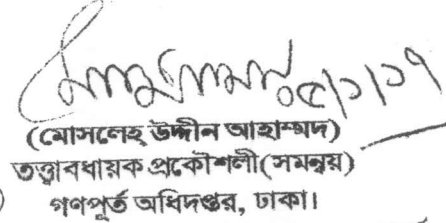 ৫/১/১৭
(মোসলেহ্ উদ্দীন আহাম্মদ)
তত্ত্বাবধায়ক প্রকৌশলী(সমন্বয়)
গণপূর্ত অধিদপ্তর, ঢাকা।